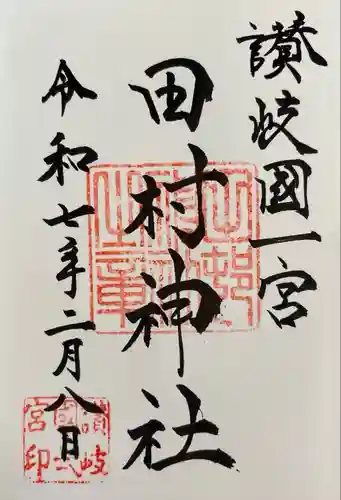 讃岐國一宮
田村神社
令和七年二月八日
田村神社之章
讃岐國一宮印